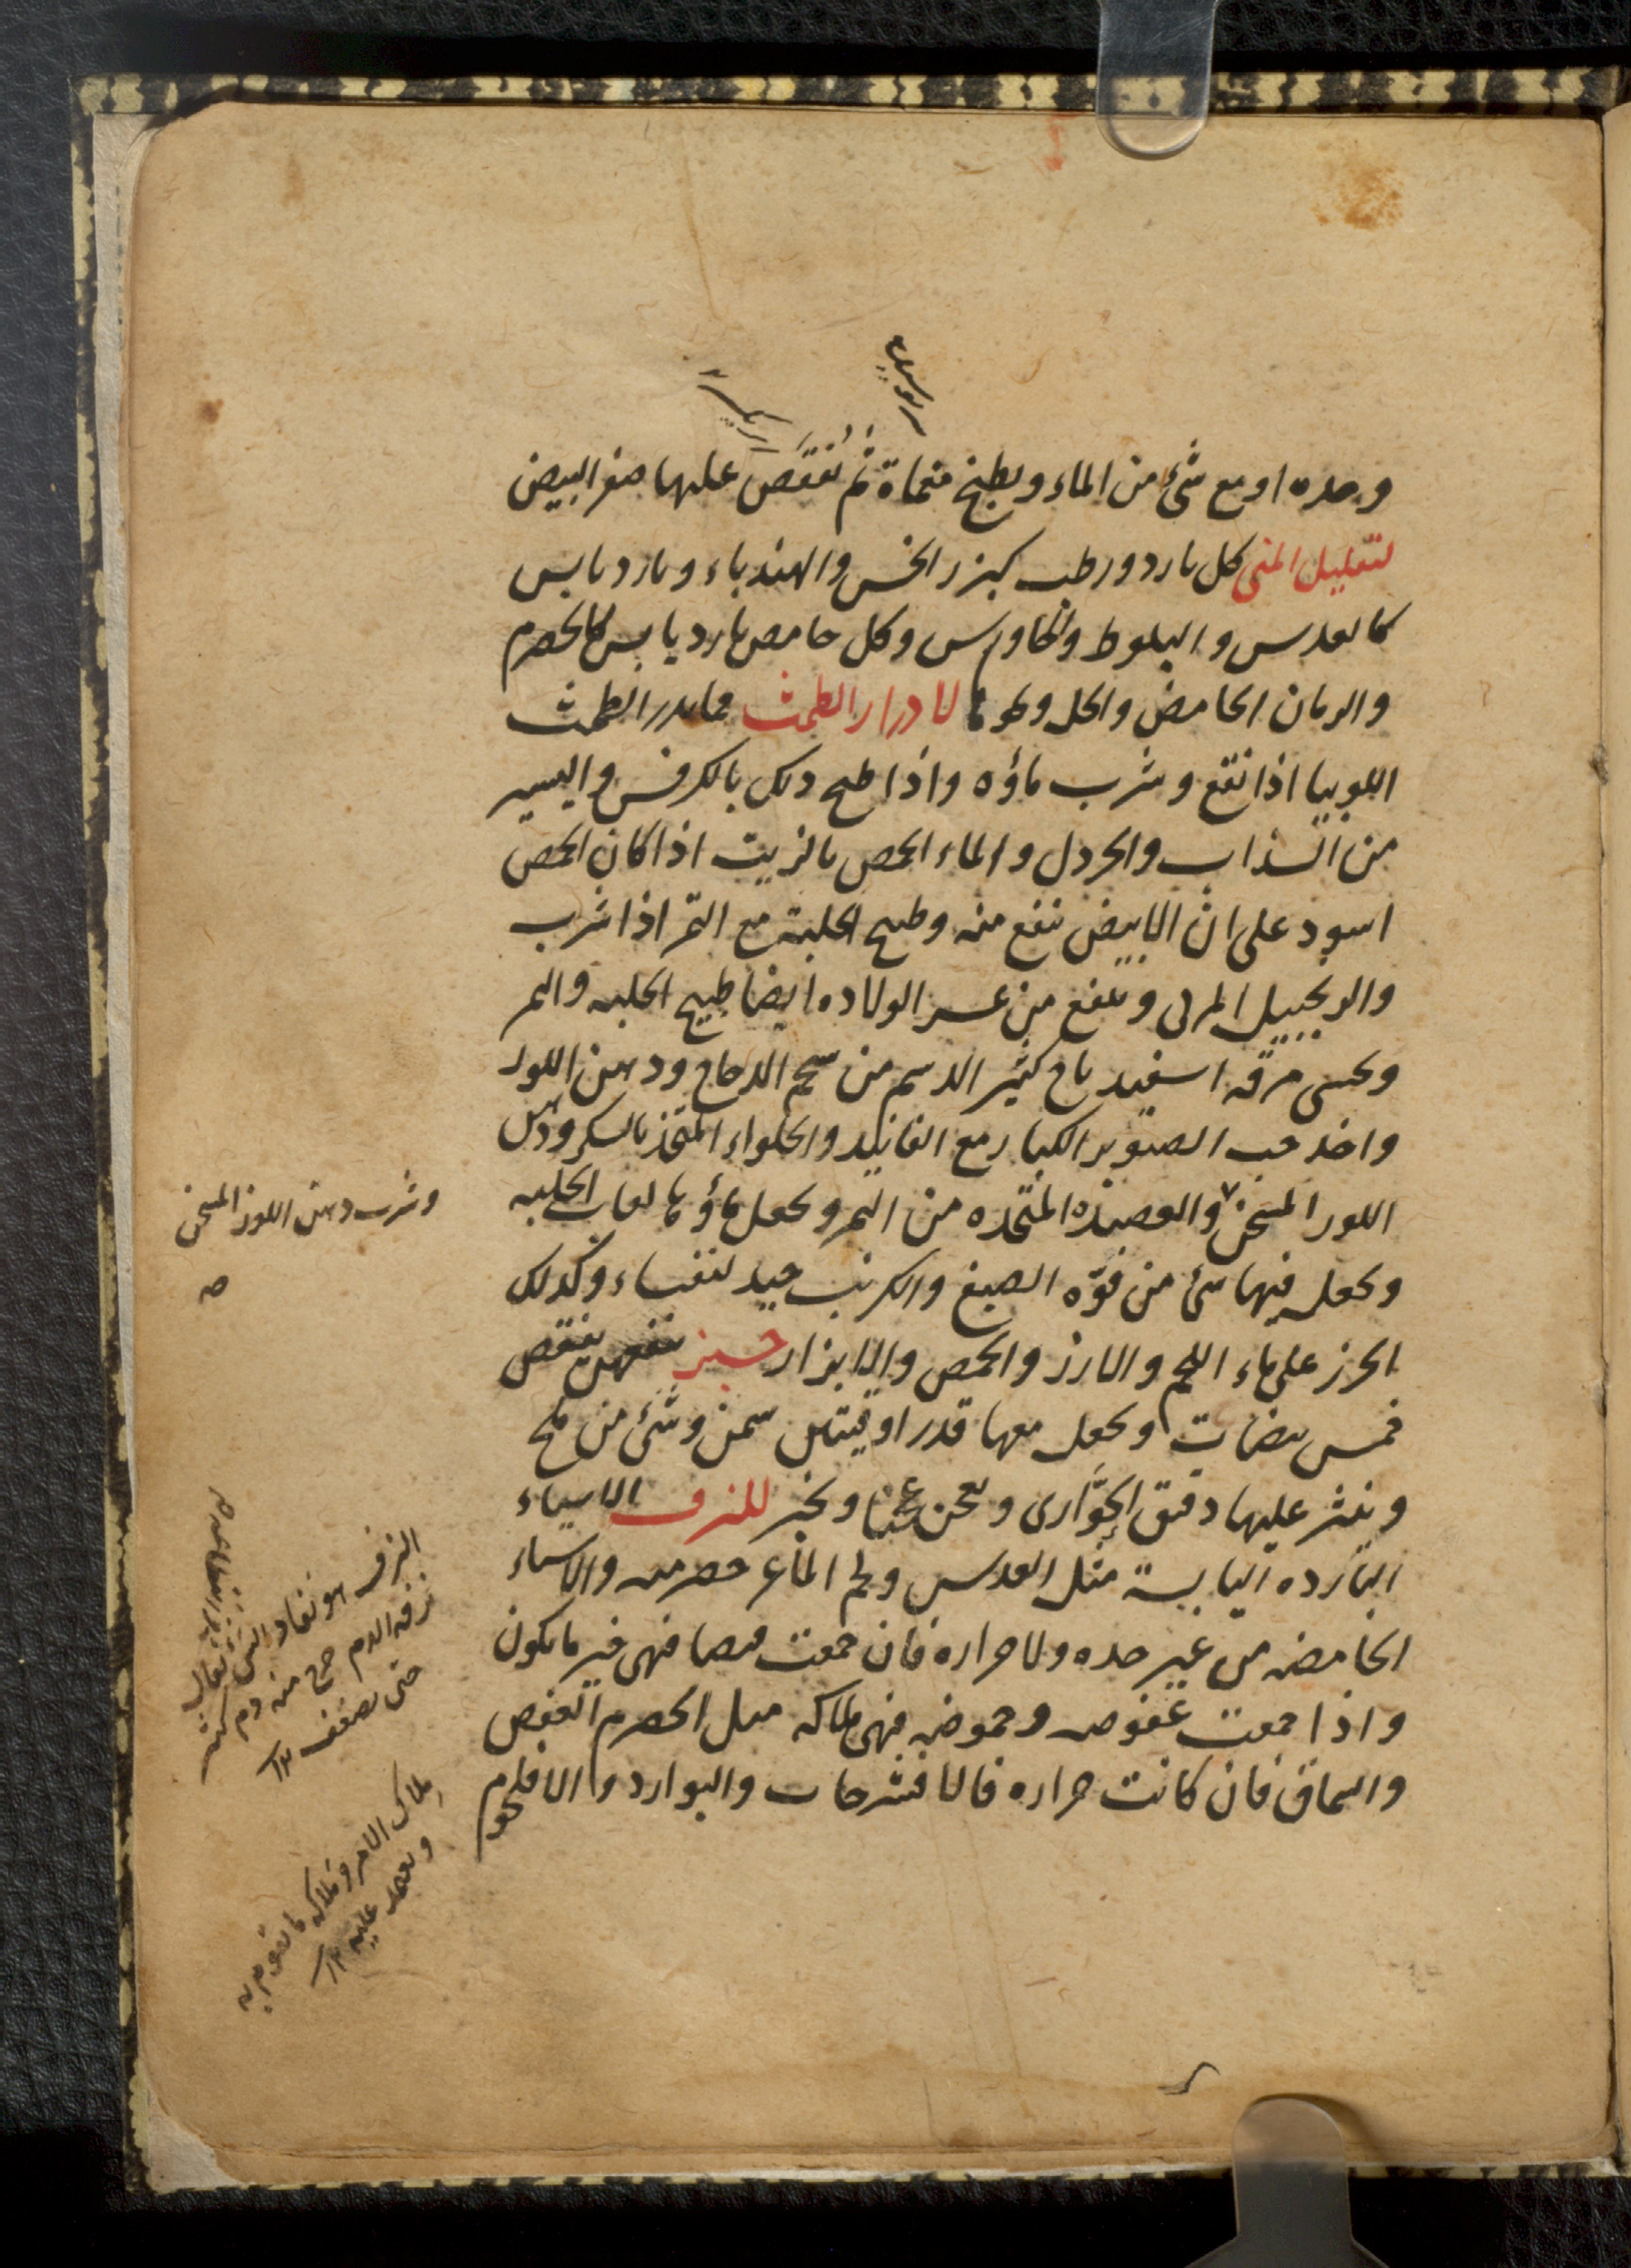 وحده او مع شئ من الماء ويطبخ منحاة ثم تفقص عليها صفر البيض
لتقليل المنى كل بارد ورطب كبزر الخس والهندباء وبارد يابس
كالعدس والبلوط والخاورس وكل حامض بارد يابس كالحصرم
والرمان الحامض والخل ونحوها لادرار الطمث مما يدر الطمث
اللوبيا اذا نقع وشرب ماؤه واذا طبخ ذلك بالكرفس واليسير
من السذاب والخردل والماء الحمص بالزيت اذا كان الحمص
اسود على ان الابيض ينفع منه وطبيخ الحلبة مع التمر اذا شرب
والزنجبيل المربى وينفع من عسر الولاده ايضا طبيخ الحلبه والتمر
وتحسى مرقه اسفيدباج كثير الدسم من شحم الدجاج ودهن اللوز
واخذ حب الصنوبر الكبار مع الفانيد والحلواء المتخذ بالسكر ودهن
اللوز المسخن والعصيده المتخذه من التمر ويجعل ماؤها لعاب الحلبه
ويجعل فيها شئ من فوّه الصبغ والكرنب جيد لنفساء وكذلك
الجزر على ماء اللحم والارز والحمص والابزار خبز ينفعهن يفقص
خمس بيضات ويجعل معها قدر اوقيتين سمن وشئ من ملح
وينثر عليها دقيق الحوّارى ويعجن عجينا ويخبز للنزف الاشياء
البارده اليابسة مثل العدس ولحم الماعز حصرميه والاشياء
الحامضه من غير حده ولا حراره فان جمعت قبضا فهى خير ما يكون
واذا جمعت عفوصه وحموضه فهى ملاكه مثل الحصرم العفص
والسماق فان كانت حراره فالافشرجات والبوارد والا فلحوم
وشرب دهن اللوز المسخن
صح
النزف هو نفاد الشئ يقال
نزفه الدم خرج منه دم كثير
حتى يضعف ١٢
ملاك الامر وملاكه ما يقوم به
ويعتمد عليه ١٢